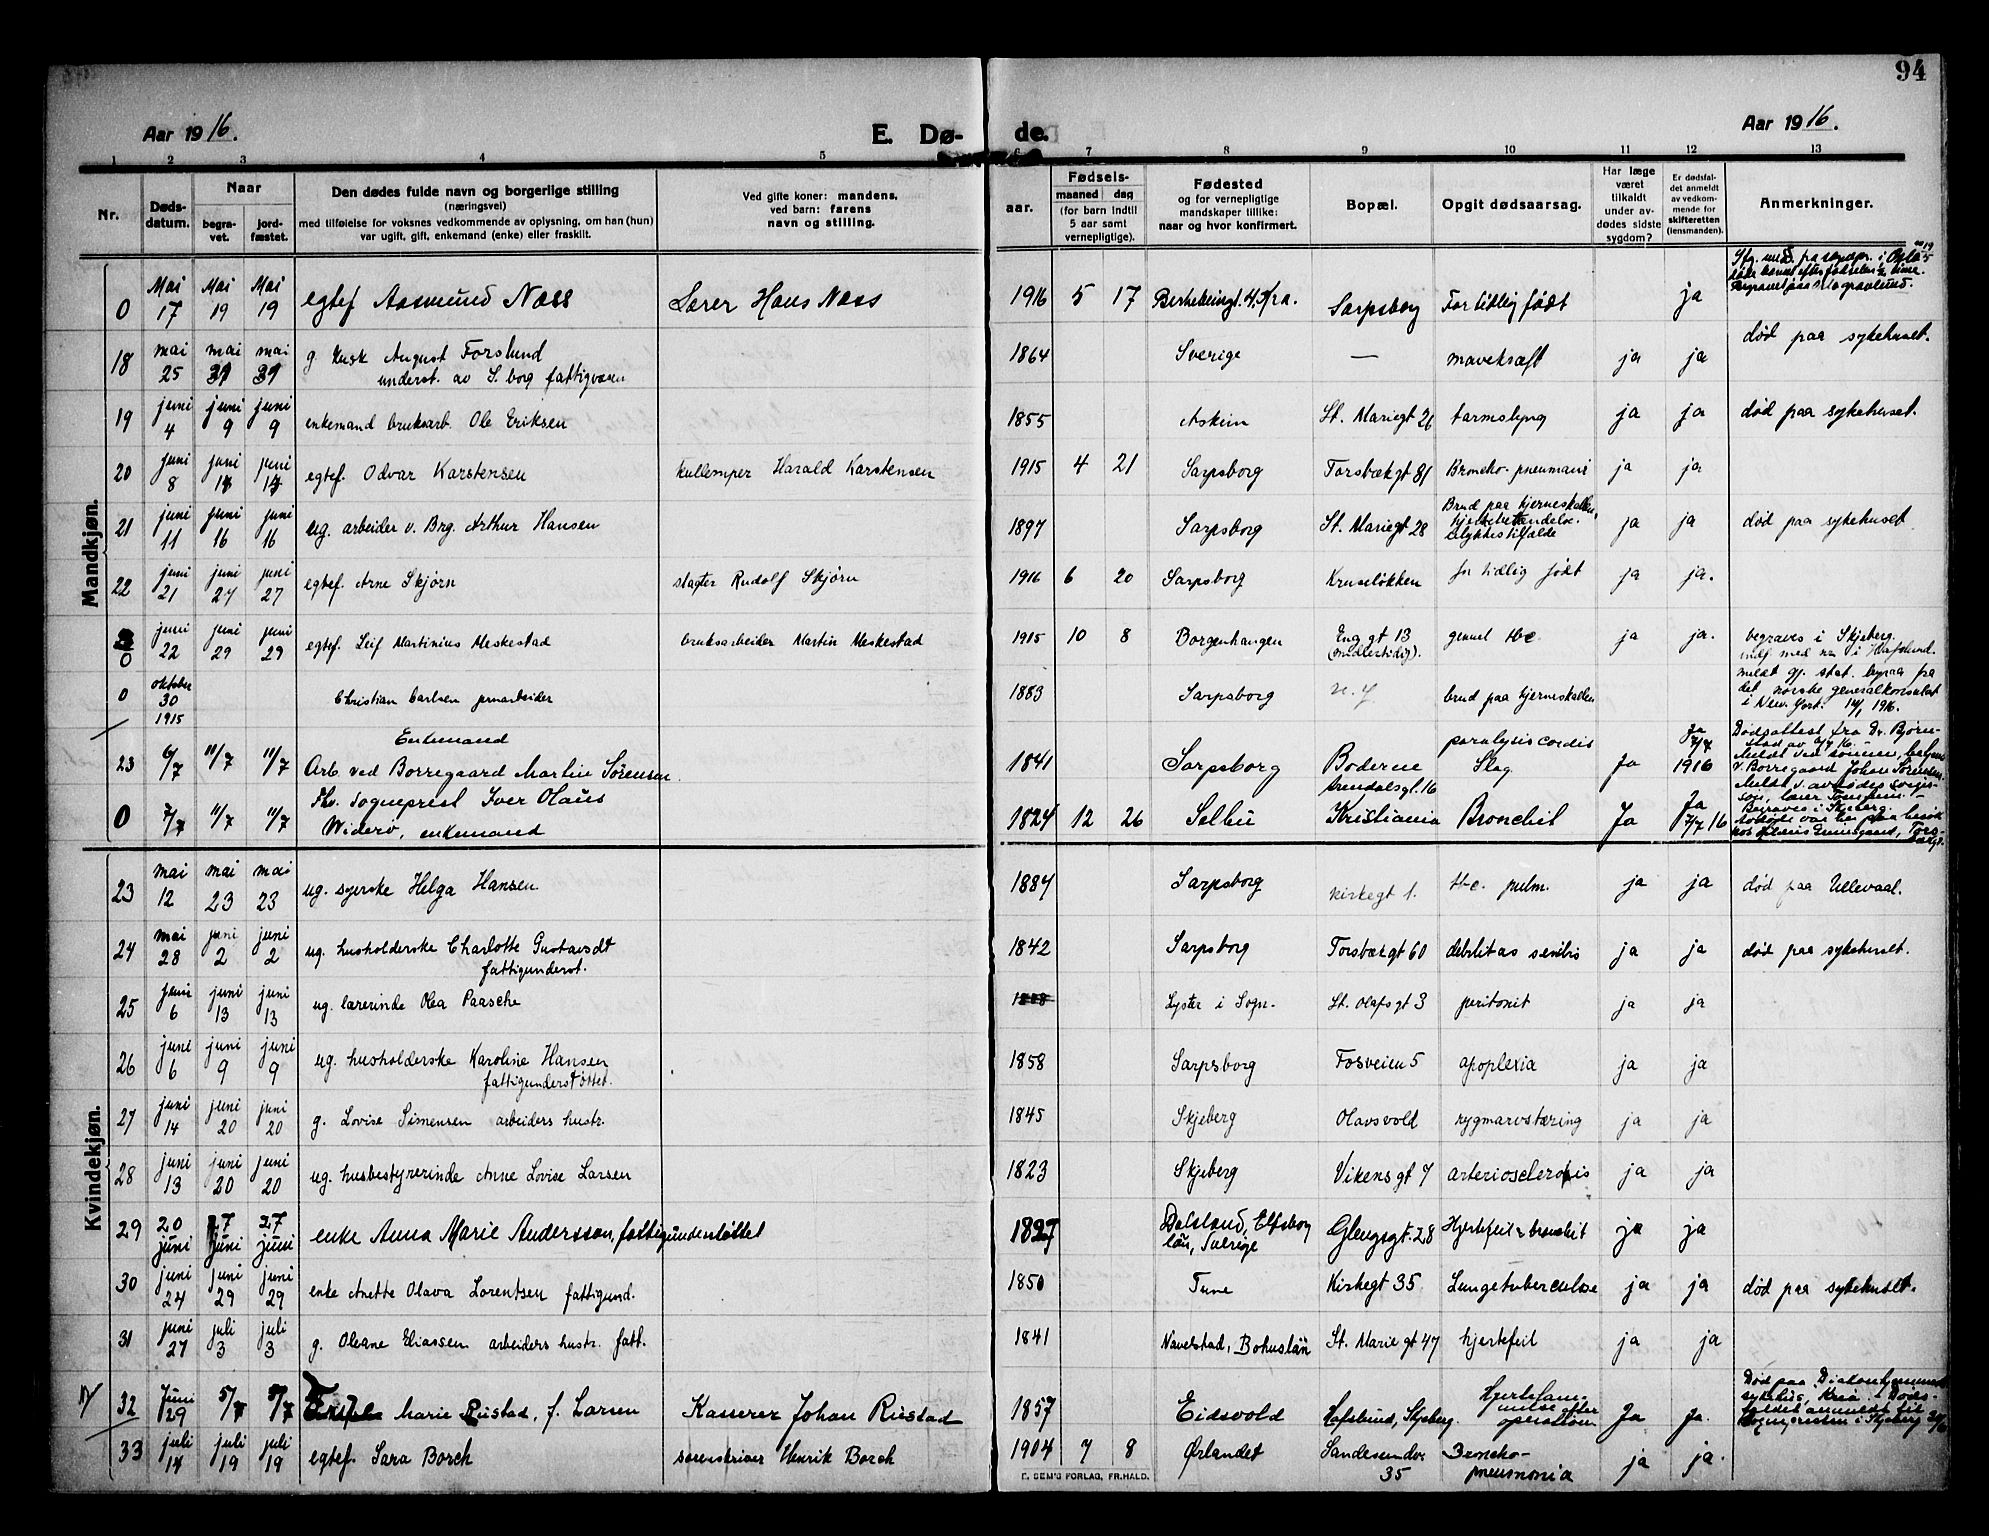 94
Aar 1916.
E. Dø-
de.
Aar 1916.
1 2 3 4 5 6 7 8 9 10 11 12 13
Nr.
Døds-
datum.
Naar
begra-
vet.
jord-
fæstet.
Den dødes fulde navn og borgerlige stilling
(næringsvei)
med tilføielse for voksnes vedkommende av oplysning, om han (hun)
var ugift, gift, enkemand (enke) eller fraskilt.
Ved gifte koner: mandens,
ved barn: farens
navn og stilling.
aar.
Fødsels-
maaned dag
(for barn indtil
5 aar samt
vernepligtige).
Fødested
og for vernepligtige
mandskaper tillike:
naar og hvor konfirmert.
Bopæl.
Opgit dødsaarsag.
Har læge
været
tilkaldt
under av-
dødes sidste
sygdom?
Er dødsfal-
det anmeldt
av vedkom-
mende for
skifteretten
(lensmanden).
Anmerkninger.
Mandkjøn.
0 Mai 17 Mai 19 Mai 19 egtef Aasmund Næss Lærer Hans Næss 1916 5 17 Sarpsborg For tidlig født ja
18 mai 25 mai 31 mai 31 g. kusk August Forslund 1864 Sverige — mavekræft ja ja død paa sykehuset.
underst. av S.borg fattigvæsen
19 juni 4 juni 9 juni 9 enkemand bruksarb. Ole Eriksen 1855 Askim St. Mariegt 26 tarmslyng ja ja død paa sykehuset.
20 juni 8 juni 14 juni 14 egtef. Odvar Karstensen kullemper Harald Karstensen 1915 4 21 Sarpsborg Torsbækgt 81 Broncho-pneumani ja ja
21 juni 11 juni 16 juni 16 ug. arbeider v. Brg. Arthur Hansen 1897 Sarpsborg St. Mariegt 28 Brud paa hjerneskallen, ulykkestilfælde ja ja død paa sykehuset
22 juni 21 juni 27 juni 27 egtef Arne Skjørn slagter Rudolf Skjørn 1916 6 20 Sarpsborg Kruseløkken for tidlig født ja ja.
0 juni 22 juni 29 juni 29 egtef. Leif Martinius Meskestad bruksarbeider Martin Meskestad 1915 10 8 Borgenhaugen Enggt 13 (midlertidig). ja ja. begraves i Skjeberg.
0 oktober 30 1915 Christian Carlsen jernarbeider 1883 Sarpsborg N.Y. brud paa hjerneskallen meldt gj. stat. byraa fra det norske generalkonsulat i New York 14/1 1916.
23 6/7 11/7 11/7 Enkemand 1841 Sarpsborg Boderne paralysis cordis Slag Ja Ja 7/7 1916 Dødsattest fra Dr. Bjørn-
Arb. ved Borregaard Martin Sørensen.
0 7/7 11/7 11/7 Fhv. Sogneprest Iver Olaus 1824 12 26 Selbu Arendalsgt. 16 Kristiania Bronchit Ja Ja 7/7 16
Widerø, enkemand
Kvindekjøn.
23 mai 12 mai 23 mai 23 ug. syerske Helga Hansen 1884 Sarpsborg Kirkegt 1. tbc. pulm. ja ja død paa Ullevaal.
24 mai 28 juni 2 juni 2 ug. husholderske Charlotte Gustavsdt 1842 Sarpsborg Torsbækgt 60 debilitas senilis ja ja død paa sykehuset.
fattigunderst.
25 juni 6 juni 13 juni 13 ug. lærerinde Olea Paasche Lyster i Sogn. St. Olafsgt 3 peritonit ja ja
26 juni 6 juni 9 juni 9 ug. husholderske Karoline Hansen 1858 Sarpsborg Fosveien 5 apoplexia ja ja
fattigunderstøttet.
27 juni 14 juni 20 juni 20 g. Lovise Simensen arbeiders hustr. 1845 Skjeberg Olavsvold rygmarvstæring ja ja
28 juni 13 juni 20 juni 20 ug. husbestyrerinde Anne Lovise Larsen 1823 Skjeberg Vikensgt 7 arteriosclerosis ja ja
29 20 juni 27 juni 27 juni enke Anna Marie Andersson, fattigunderstøttet 1827 Dalsland, Elfsborg län, Sverige Glengsgt. 28 Hjertefeil & bronchit ja ja
30 juni 24 juni 29 juni 29 enke Anette Olava Lorentsen fattigund. 1850 Tune Kirkegt 35 Lungetuberculose ja ja død paa sykehuset.
31 juni 27 juli 3 juli 3 g. Oleane Eliassen arbeiders hustr. fatt. 1841 Naverstad, Bohuslän St. Marie gt 47 hjertefeil ja ja
32 Juni 29 5/7 5/7 Marie Rustad, f. Larsen Kasserer Johan Rustad 1857 Eidsvold Hafslund, Skjeberg. Hjertelam-melse efter operation Ja Ja. Død paa Diakonhjemmets sykehus, Kria.
33 juli 14 juli 19 juli 19 egtef. Sara Borch sorenskriver Henrik Borch 1904 7 8 Ørlandet Sandesundv. 35 Broncho-pneumonia ja ja.
E. SEM'S FORLAG, FR.HALD.